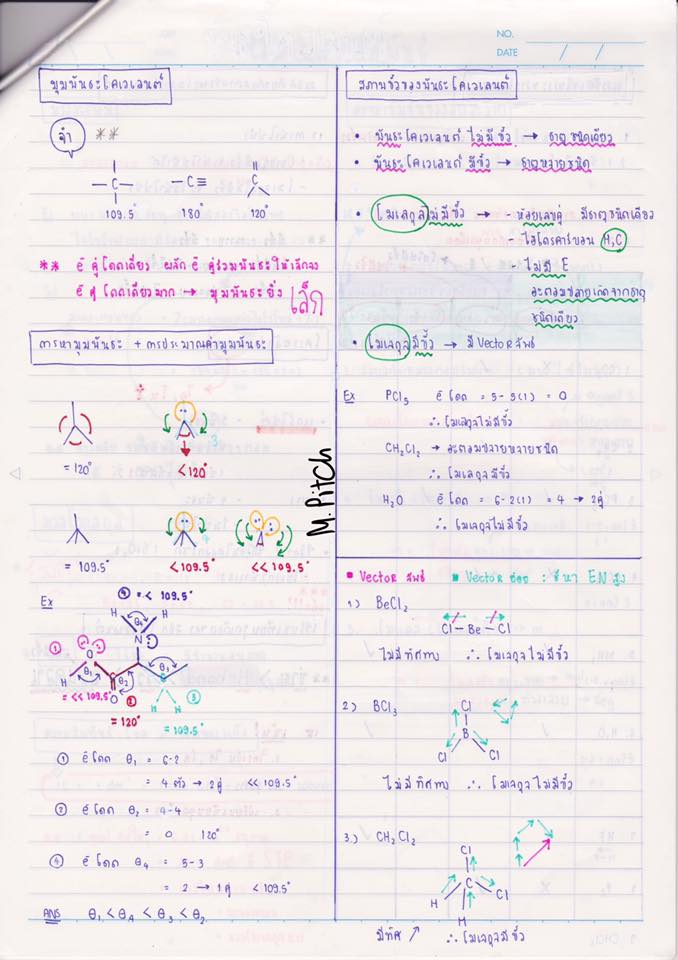 NO.
DATE
มุมพันธะโคเวเลนต์
จำ **
-C- -C≡ C
109.5° 180° 120°
** ē คู่โดดเดี่ยว ผลัก ē คู่ร่วมพันธะให้เล็กลง
ē คู่ โดดเดี่ยวมาก → มุมพันธะยิ่ง เล็ก
การหามุมพันธะ + การประมาณค่ามุมพันธะ
= 120° <120°
= 109.5° <109.5° << 109.5°
Ex
④ = < 109.5°
H H
θ₄
N
①
O
H
θ₁
θ₂
θ₃
O
②
H H
③
= << 109.5°
= 120°
= 109.5°
① ē โดด θ₁ = 6-2
= 4 ตัว → 2คู่ << 109.5°
② ē โดด θ₂ = 4-4
= 0 120°
④ ē โดด θ₄ = 5-3
= 2 → 1คู่ < 109.5°
ANS θ₁ < θ₄ < θ₃ < θ₂
M.PitCh
สภาพขั้วของพันธะโคเวเลนต์
• พันธะโคเวเลนต์ ไม่มีขั้ว → ธาตุชนิดเดียว
• พันธะโคเวเลนต์ มีขั้ว → ธาตุหลายชนิด
• โมเลกุลไม่มีขั้ว → - ห้อยเลขคู่ มีธาตุชนิดเดียว
- ไฮโดรคาร์บอน H,C
- ไม่มี E
อะตอมปลายเกิดจากธาตุ
ชนิดเดียว
• โมเลกุลมีขั้ว → มี Vector ลัพธ์
Ex PCl₅ ē โดด = 5-5(1) = 0
∴ โมเลกุลไม่มีขั้ว
CH₂Cl₂ → อะตอมปลายหลายชนิด
∴ โมเลกุลมีขั้ว
H₂O ē โดด = 6-2(1) = 4 → 2คู่
∴ โมเลกุลไม่มีขั้ว
Vector ลัพธ์ Vector ย่อย : ชี้หา EN สูง
1) BeCl₂
Cl-Be-Cl
ไม่มีทิศทาง ∴ โมเลกุลไม่มีขั้ว
2) BCl₃
Cl
B
Cl Cl
ไม่มีทิศทาง ∴ โมเลกุลไม่มีขั้ว
3.) CH₂Cl₂
Cl
C
Cl
H
H
มีทิศ ↗ ∴ โมเลกุลมีขั้ว